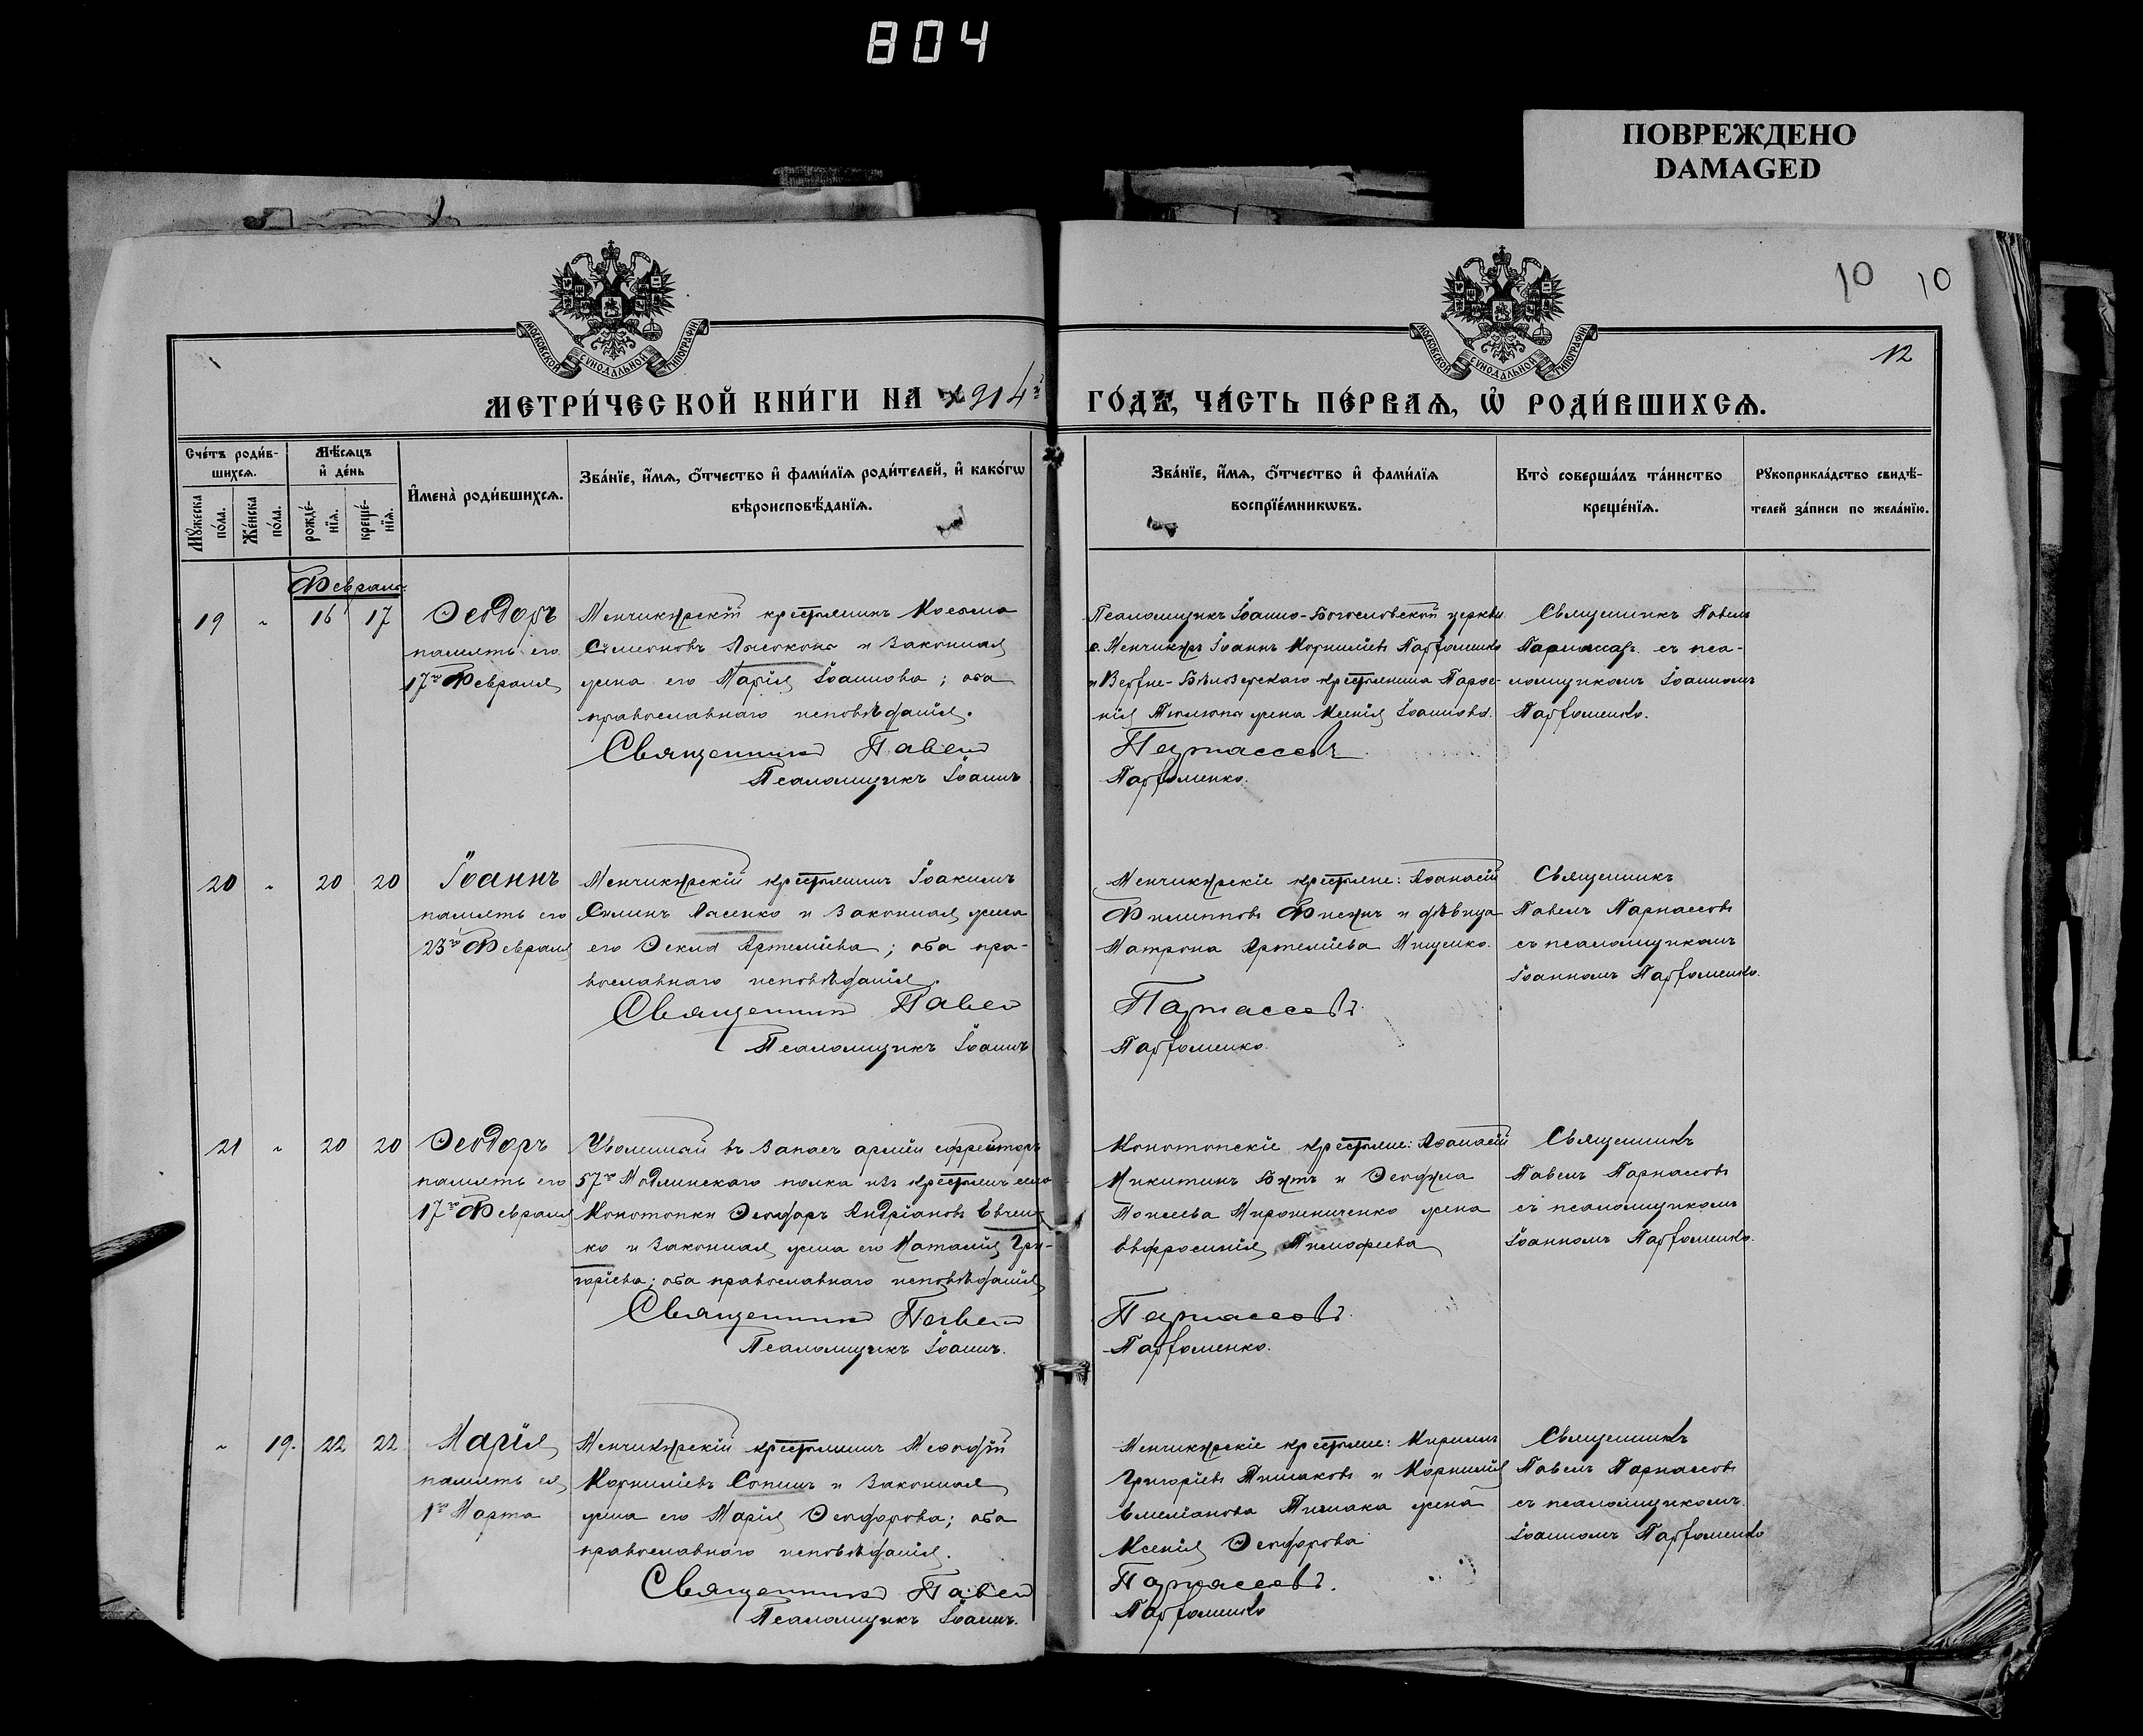 804
ПОВРЕЖДЕНО
DAMAGED
10 10
12
МОСКОВСКОЙ СѴНОДАЛЬНОЙ ТИПОГРАФІИ
МОСКОВСКОЙ СѴНОДАЛЬНОЙ ТИПОГРАФІИ
МЕТРИ́ЧЕСКОЙ КНИ́ГИ НА 1914й ГО́ДЪ, ЧА́СТЬ ПЕ́РВАѦ, Ѡ҆ РОДИ́ВШИХСѦ.
Сче́тъ роди́в-
шихсѧ.
Мꙋ́жеска по́ла.
Же́нска по́ла.
Мѣ́сѧцъ
и҆ де́нь
рожде́-нїѧ.
креще́-нїѧ.
И҆мена̀ роди́вшихсѧ.
Зва́нїе, и҆́мѧ, ѻ҆́тчество и҆ фамѝлїѧ роди́телей, и҆ како́гѡ
вѣроисповѣ́данїѧ.
Зва́нїе, и҆́мѧ, ѻ҆́тчество и҆ фамѝлїѧ
воспрїе́мникѡвъ.
Кто̀ соверша́лъ та́инство
креще́нїѧ.
Рꙋкоприкла́дство свидѣ́-
телей за́писи по жела́нїю.
Февраль.
19 „ 16 17
Ѳеодоръ
память его
17го Февраля
Менчикурскій крестьянинъ Косьма
Симеоновъ и законная
жена его Марія Іоаннова; оба
православнаго исповѣданія.
Священникъ Павелъ Парнассовъ
Псаломщикъ Іоаннъ Парфоменко.
Псаломщикъ Іоанно-Богословской церкви
с. Менчикуръ Іоаннъ Корниліевъ Парфоменко
и Верхне-Бѣлозерскаго крестьянина Парѳе-
нія жена Ксенія Іоаннова.
Священникъ Павелъ
Парнассовъ съ пса-
ломщикомъ Іоанномъ
Парфоменко.
20 „ 20 20
Іоаннъ
память его
23го Февраля
Менчикурскій крестьянинъ Іоакимъ
Силинъ Лысенко и законная жена
его Ѳекла Артеміева; оба пра-
вославнаго исповѣданія.
Священникъ Павелъ Парнассовъ.
Псаломщикъ Іоаннъ Парфоменко.
Менчикурскіе крестьяне: Аѳанасій
Филипповъ и дѣвица
Матрона Артеміева Мищенко.
Священникъ
Павелъ Парнассовъ
съ псаломщикомъ
Іоанномъ Парфоменко.
21 „ 20 20
Ѳеодоръ
память его
17го Февраля
Уволенный въ запасъ арміи ефрейторъ
57го Модлинскаго полка изъ крестьянъ села
Конотопки Ѳеодоръ Андріановъ Евчен-
ко и законная жена его Наталія Гри-
горіева; оба православнаго исповѣданія
Священникъ Павелъ Парнассовъ.
Псаломщикъ Іоаннъ. Парфоменко.
Конотопскіе крестьяне: Аѳанасій
Никитинъ Бутъ и Ѳеодула
Мирошниченко жена
Евфросинія Тимофеева
Священникъ
Павелъ Парнассовъ
съ псаломщикомъ
Іоанномъ Парфоменко.
„ 19. 22 22
Марія
память ея
1го Марта
Менчикурскій крестьянинъ Меѳодій
Корниліевъ Сопинъ и законная
жена его Марія Ѳеодорова; оба
православнаго исповѣданія.
Священникъ Павелъ Парнассовъ.
Псаломщикъ Іоаннъ. Парфоменко
Менчикурскіе крестьяне: Кириллъ
Григоріевъ и Корнилія
Емеліанова жена
Ксенія Ѳеодорова
Священникъ
Павелъ Парнассовъ
съ псаломщикомъ
Іоанномъ Парфоменко